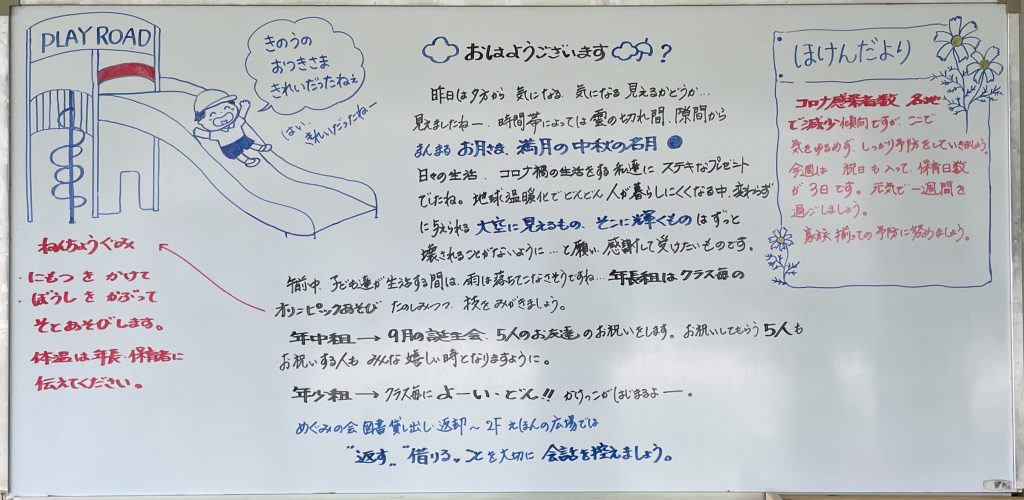 PLAY ROAD
きのうの
おつきさま
きれいだったねぇ
はい、
きれいだったねー
ねんちょうぐみ
・にもつ を かけて
・ぼうし を かぶって
そとあそびします。
体温は年長・保育者に
伝えてください。
おはようございます ?
昨日は夕方から 気になる、気になる 見えるかどうか…
見えましたねー、時間帯によっては 雲の切れ間、隙間から
まんまる お月さま、満月の中秋の名月
日々の生活、コロナ禍の生活をする私達に ステキなプレゼント
でしたね。地球温暖化でどんどん 人が暮らしにくくなる中、変わらず
に与えられる 大空に見えるもの、そこに輝くものはずっと
壊されることがないように…と願い、感謝して受けたいものです。
午前中、子ども達が生活する間は、雨は落ちてこなさそうですね… 年長組は クラス毎の
オリンピックあそび たのしみつつ、技をみがきましょう。
年中組→ 9月の誕生会、5人のお友達のお祝いをします。お祝いしてもらう5人も
お祝いする人も みんな 嬉しい時となりますように。
年少組→ クラス毎に よーい・どん!! かけっこがはじまるよー。
めぐみの会 図書貸し出し・返却〜2F えほんの広場では
"返す" "借りる" ことを大切に 会話を控えましょう。
ほけんだより
コロナ感染者数 各地
で減少傾向ですが、ここで
気をゆるめず、しっかり予防をしていきましょう。
今週は 祝日も入って、保育日数
が 3日です。元気で一週間を
過ごしましょう。
家族揃っての予防に努めましょう。